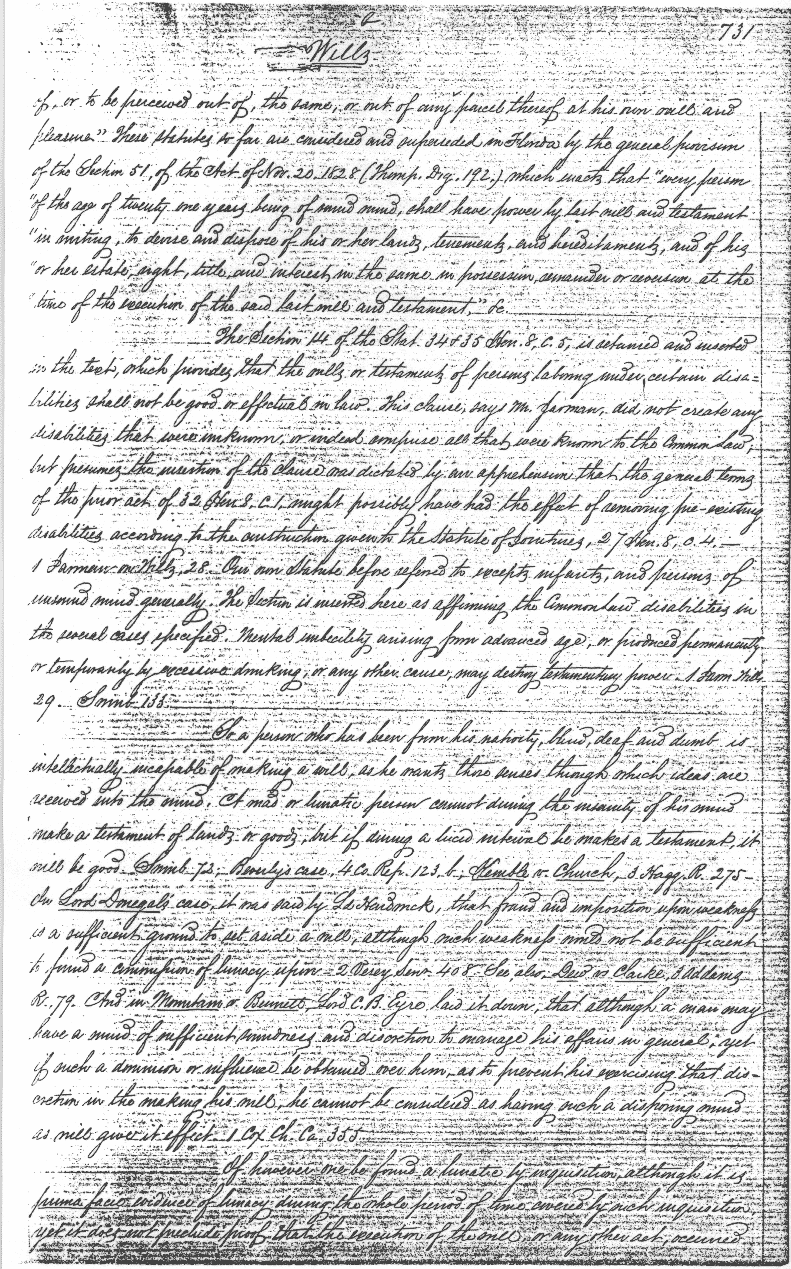 731
Wills
of, or to be perceived out of, the same, or out of any parcel thereof at his own will and
pleasure." These statutes so far are considered and superseded in Florida by the general provision
of the Section 51, of the Act of Nov. 20. 1828 (Thomp. Dig. 192.) which enacts that "every person
"of the age of twenty one years, being of sound mind, shall have power by last will and testament
"in writing, to devise and dispose of his or her lands, tenements, and hereditaments, and of his
"or her estate, right, title, and interest, in the same in possession, remainder or reversion at the
time of the execution of the said last will and testament," &c.
The Section 14 of the Stat. 34 & 35 Hen. 8, C. 5, is retained and inserted
in the text, which provides, that the wills or testaments of persons laboring under certain disa=
bilities shall not be good or effectual in law. This clause, says Mr. Jarman, did not create any
disabilities that were unknown, or indeed comprise all that were known to the Common Law,
but presumes the insertion of the clause was dictated by an apprehension that the general terms
of the prior act of 32 Hen 8. C 1, might possibly have had the effect of removing pre-existing
disabilities according to the construction given to the Statute of 27 Hen. 8, C. 4. —
1 Jarman on Wills, 28. Our own Statute before referred to excepts infants, and persons of
unsound mind generally. The Section is inserted here as affirming the Common Law disabilities in
the several cases specified. Mental imbecility arising from advanced age, or produced permanently
or temporarily by excessive drinking, or any other cause, may destroy testamentary power. 1 Jarm. Wills,
29. Swinb 155.
So a person who has been from his nativity, blind, deaf and dumb is
intellectually incapable of making a will, as he wants those senses through which ideas are
received into the mind. A mad or lunatic person cannot during the insanity of his mind
make a testament of lands or goods, but if during a lucid interval he makes a testament, it
will be good. Swinb 72; Beverly's case, 4 Co. Rep. 123. b.; Kemble v. Church, 3 Hagg. R. 275 —
In Lord Donegal's case, it was said by Ld Hardwick, that fraud and imposition upon weakness
is a sufficient ground to set aside a will, although such weakness would not be sufficient
to found a commission of lunacy upon — 2 Vesey Senr. 408. See also, Dew vs Clarke, 3 Addams
R. 79. And in Mountain v. Bennett, Lord C. B. Eyre laid it down, that although a man may
have a mind of sufficient soundness and discretion to manage his affairs in general; yet
if such a dominion or influence be obtained over him, as to prevent his exercising that dis-
cretion in the making his will, he cannot be considered as having such a disposing mind
as will give it effect. 1 Cox Ch. Ca. 355
If however one be found a lunatic by inquisition, although it is
prima facie evidence of lunacy during the whole period of time covered by such inquisition,
yet it does not preclude proof, that the execution of the will, or any other act, occurred